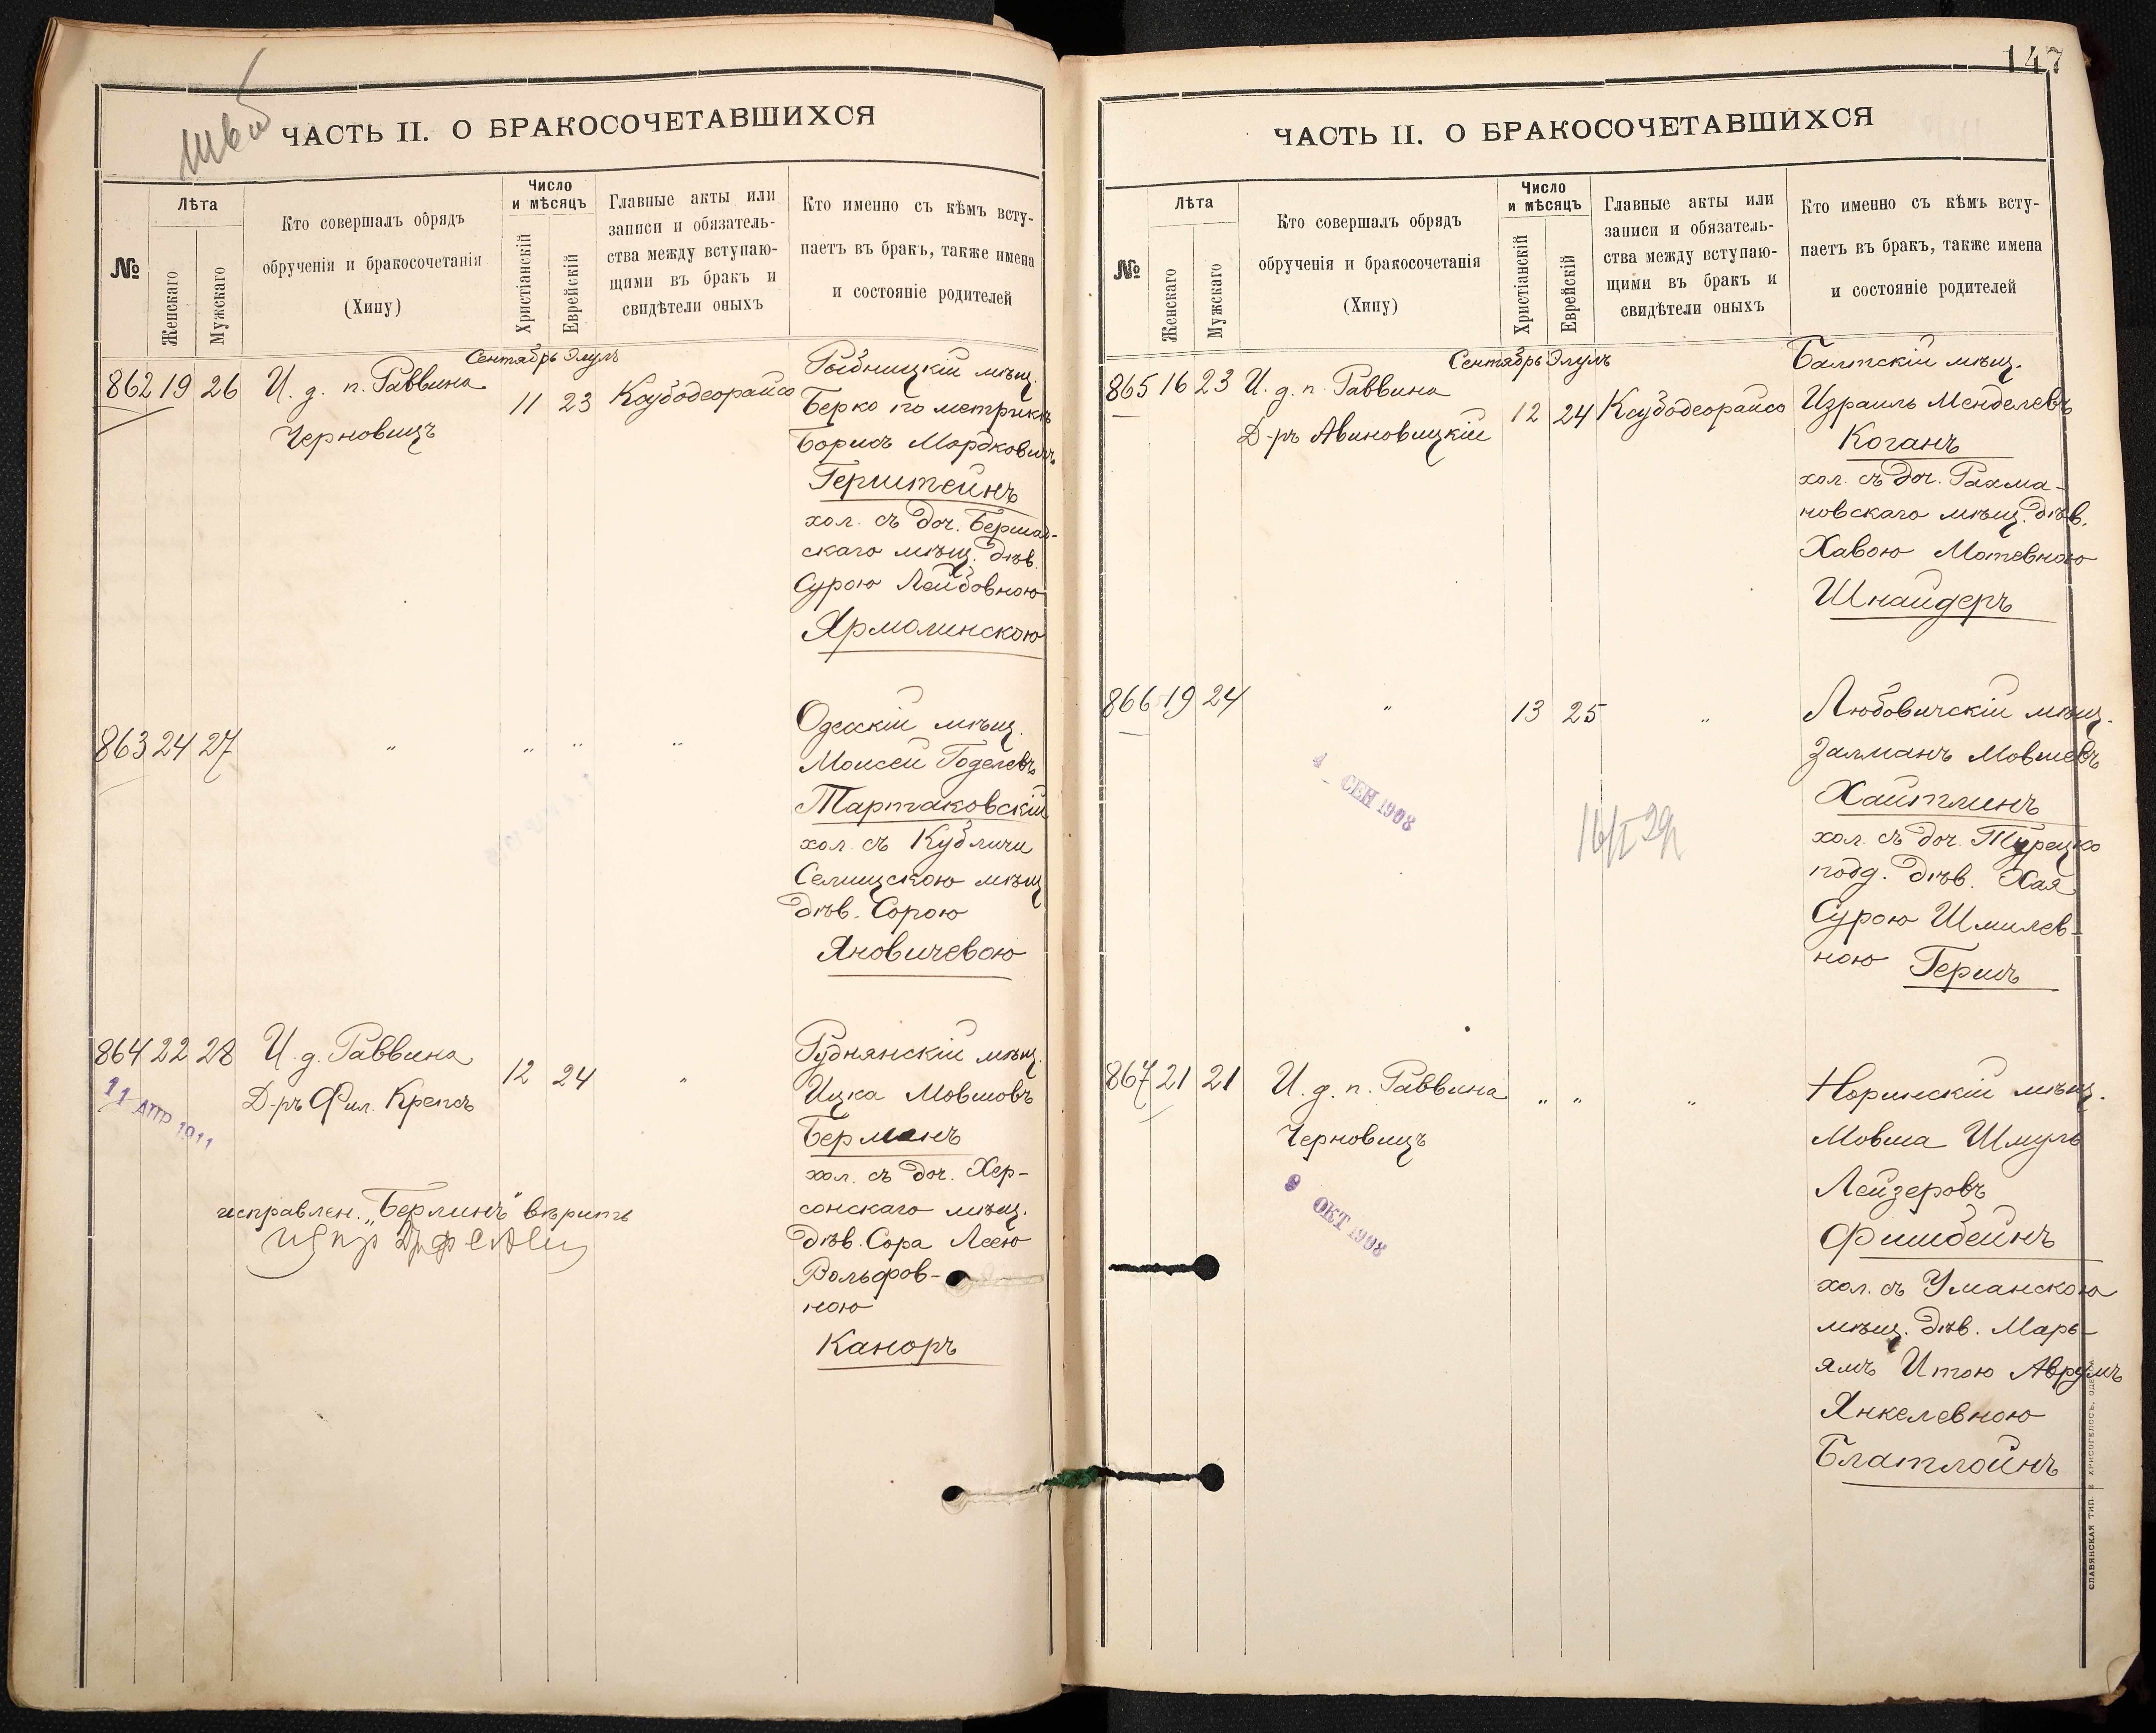 ЧАСТЬ II. О БРАКОСОЧЕТАВШИХСЯ
№
Лѣта
Женскаго
Мужскаго
Кто совершалъ обрядъ
обрученія и бракосочетанія
(Хипу)
Число
и мѣсяцъ
Христіанскій
Еврейскій
Главные акты или
записи и обязатель-
ства между вступаю-
щими въ бракъ и
свидѣтели оныхъ
Кто именно съ кѣмъ всту-
паетъ въ бракъ, также имена
и состояніе родителей
Сентябрь Элулъ
862 19 26
И. д. п. Раввина
Черновицъ
11 23
Ксубодеорайсо
Рыбницкій мѣщ.
Берко по метрикѣ
Борисъ Мордковичъ
Герштейнъ
хол. съ доч. Бершад-
скаго мѣщ. дѣв.
Сурою Лейбовною
Ярмолинскою
863 24 27
" " " "
Одесскій мѣщ.
Моисей Годелевъ
Тартаковскій
хол. съ Кубличи
Селищскою мѣщ
дѣв. Сорою
Яновичевою
864 22 28
И. д. Раввина
Д-ръ Фил. Крепсъ
12 24
"
11 АПР 1911
Руднянскій мѣщ.
Ицка Мовшовъ
Берманъ
хол. съ доч. Хер-
сонскаго мѣщ.
дѣв. Сора Леею
Вольфов-
ною
Каноръ
исправлен. „Берлинъ" вѣрить
147
ЧАСТЬ II. О БРАКОСОЧЕТАВШИХСЯ
№
Лѣта
Женскаго
Мужскаго
Кто совершалъ обрядъ
обрученія и бракосочетанія
(Хипу)
Число
и мѣсяцъ
Христіанскій
Еврейскій
Главные акты или
записи и обязатель-
ства между вступаю-
щими въ бракъ и
свидѣтели оныхъ
Кто именно съ кѣмъ всту-
паетъ въ бракъ, также имена
и состояніе родителей
Сентябрь Элулъ
865 16 23
И. д. п. Раввина
Д-ръ Авиновицкій
12 24
Ксубодеорайсо
Балтскій мѣщ.
Израиль Менделевъ
Коганъ
хол. съ доч. Рахма-
новскаго мѣщ. дѣв.
Хавою Мотевною
Шнайдеръ
866 19 24
"
13 25
"
4 СЕН 1908
Любовичскій мѣщ.
Залманъ Мовшевъ
Хайтлинъ
хол. съ доч. Турецко
подд. дѣв. Хая
Сурою Шмилев-
ною Гершъ
867 21 21
И. д. п. Раввина
Черновицъ
" " "
9 ОКТ 1908
Норинскій мѣщ.
Мовша Шмуль
Лейзеровъ
Фишбейнъ
хол. съ Уманскою
мѣщ. дѣв. Марь-
ямъ Итою Аврумъ
Янкелевною
Блатлойнъ